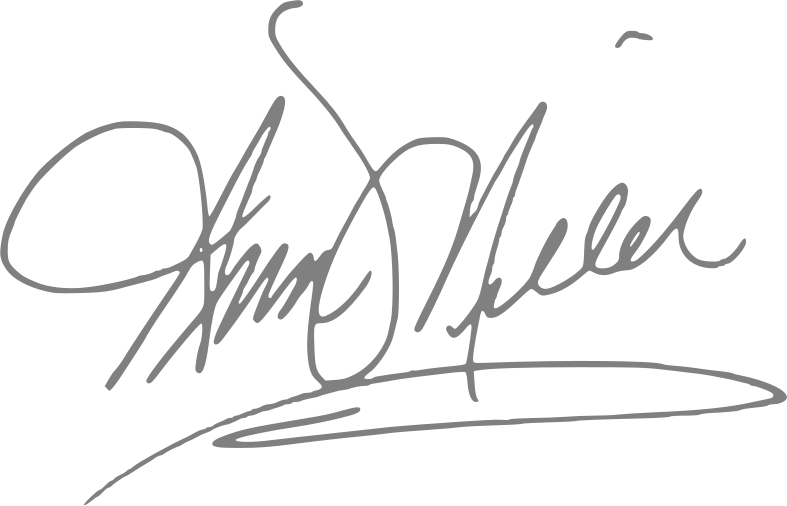 Ann S Miller